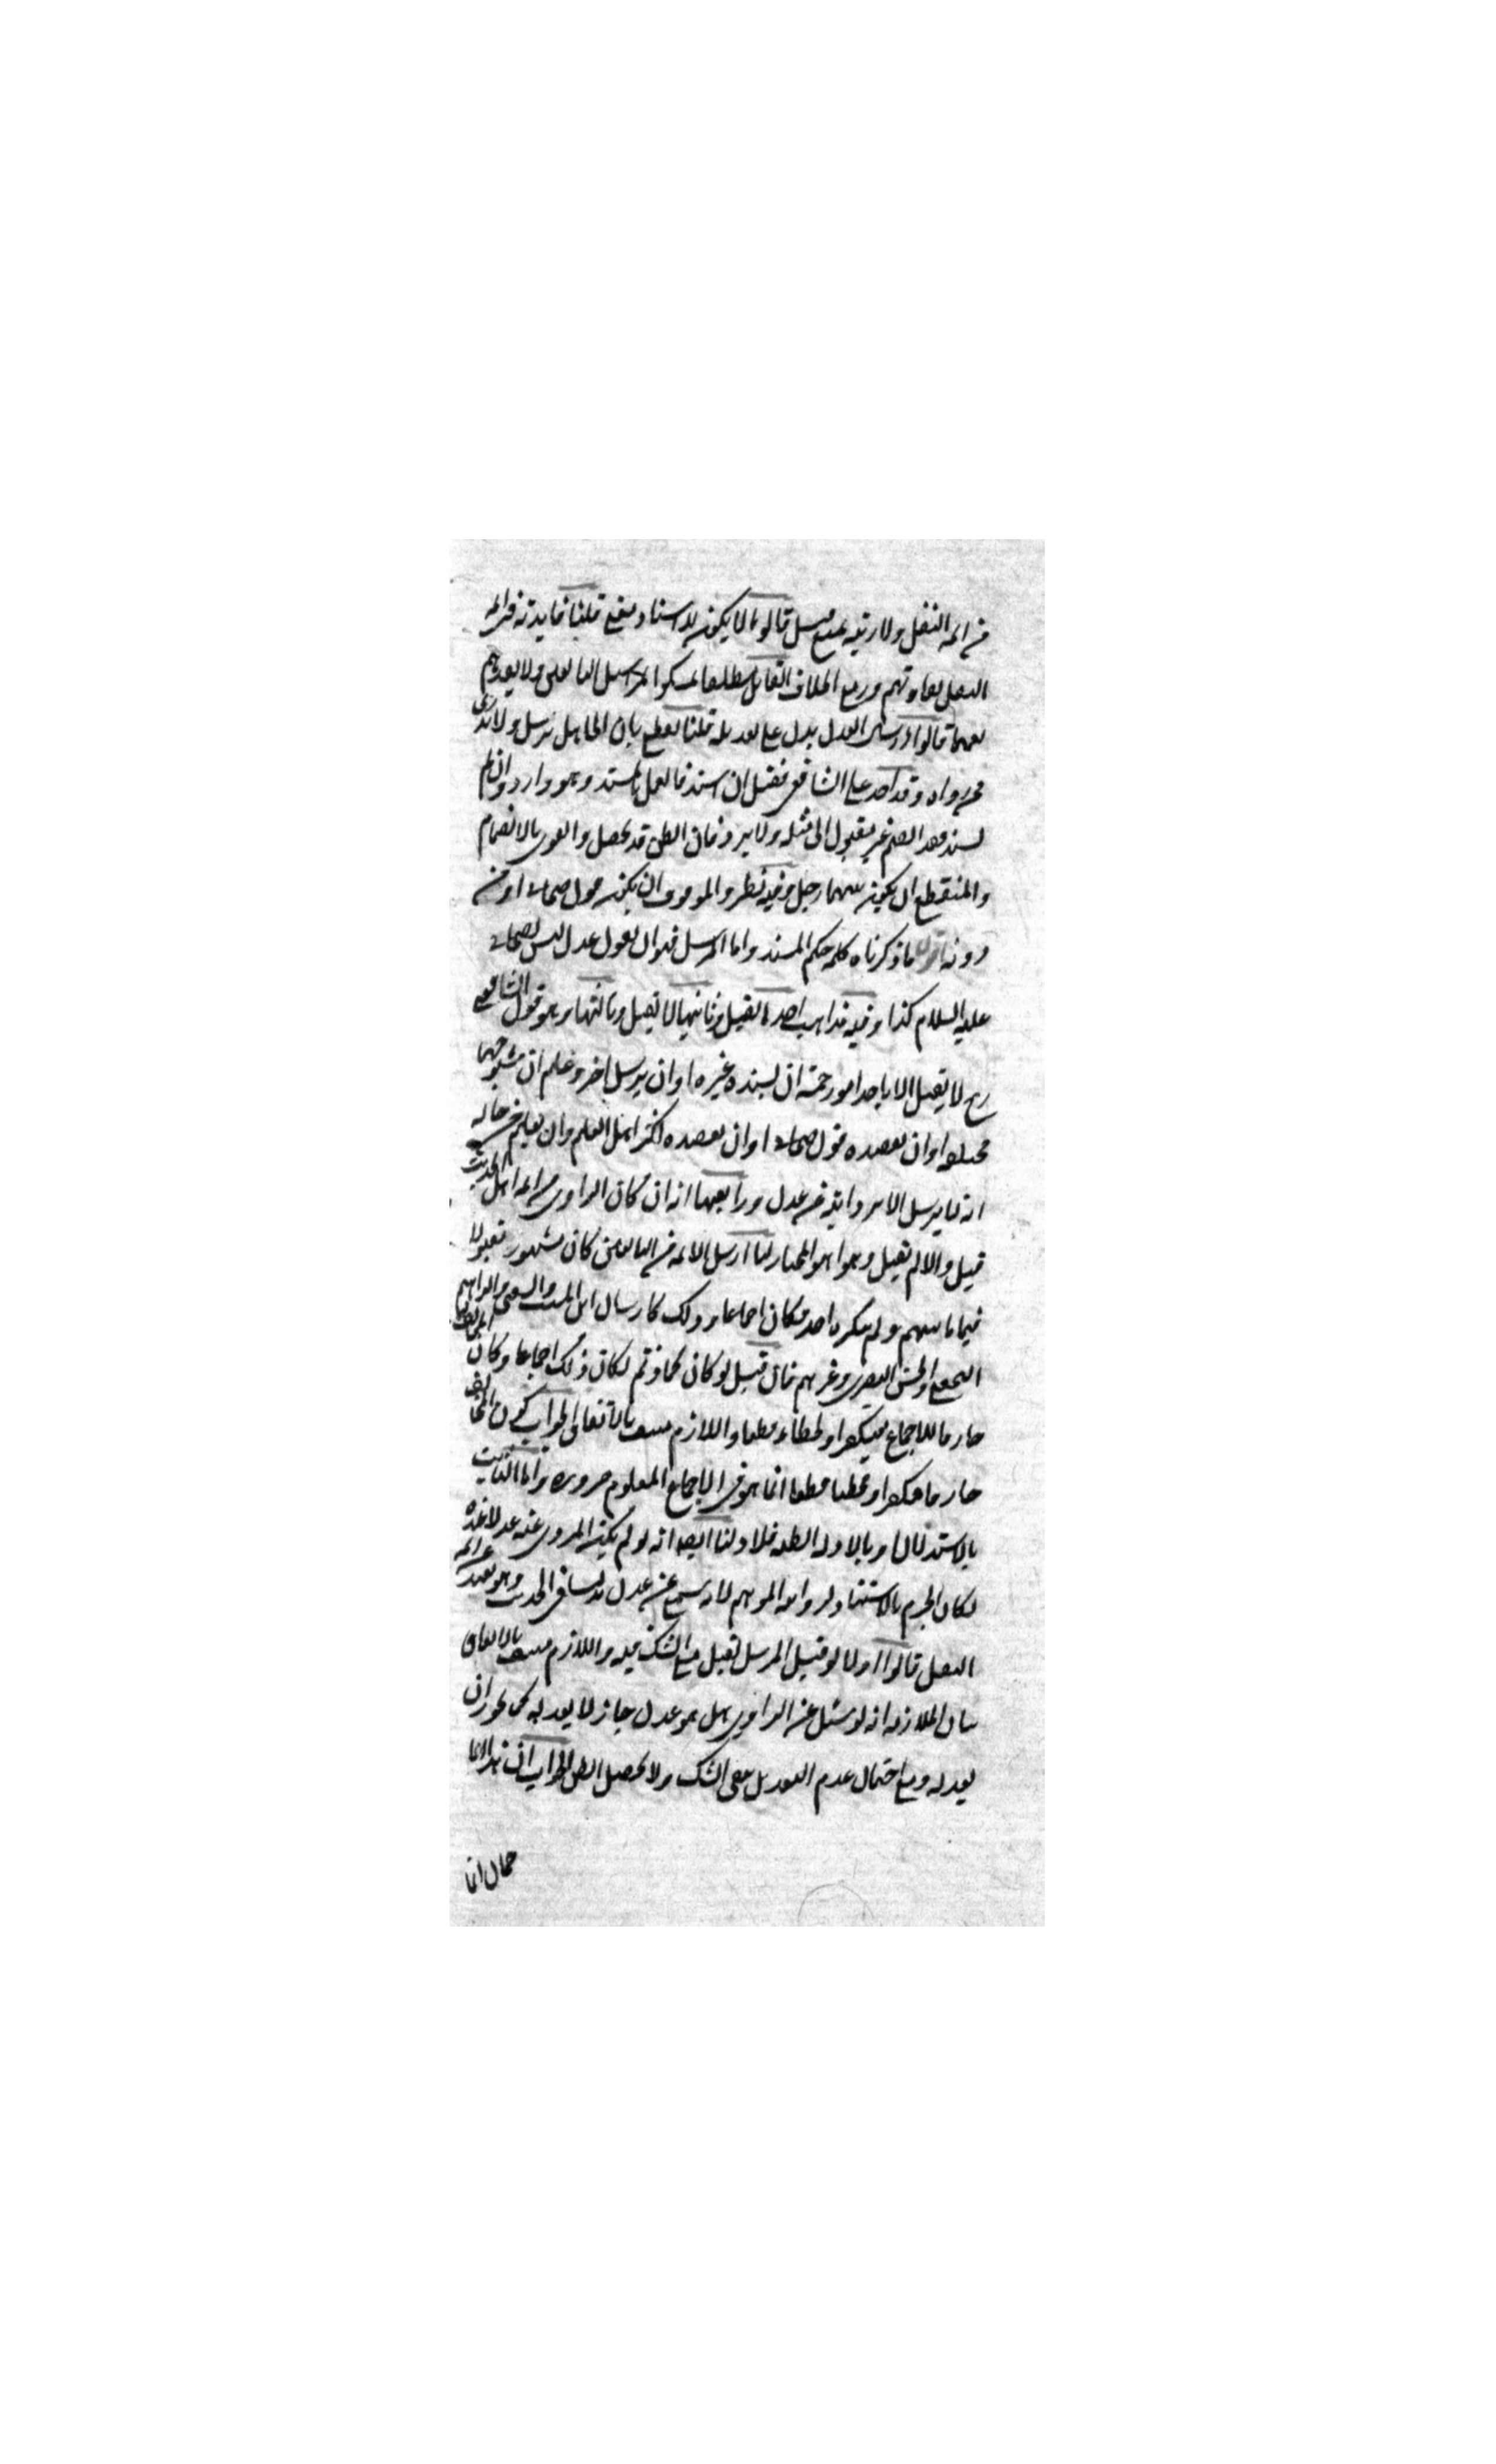 من ائمة النقل ولا ريبة تمنع قبل قالوا لا يكون للاسناد معنى قلنا فايدته في ائمة
النقل تفاوتهم ورفع الخلاف القائل مطلقا تمسكوا بمراسيل التابعين ولا يفيدهم
تعميما قالوا ارسال العدل يدل على تعديله قلنا نقطع بان الجاهل يرسل ولا يدرى
من رواه وقد اخذ على الشافعى فقيل ان اسند فالعمل بالمسند وهو وارد وان لم
يسند فقد انضم غير مقبول الى مثله ولا يرد فان الظن قد يحصل ويقوى بالانضمام
والمنقطع ان يكون بينهما رجل وفيه نظر والموقوف ان يكون قول صحابى او من
دونه اقول ما ذكرناه كله حكم المسند واما المرسل فهو ان يقول عدل ليس بصحابى قال
عليه السلام كذا وفيه مذاهب احدها يقبل وثانيها لا يقبل وثالثها وهو قول الشافعى
رح لا يقبل الا باحد امور خمسة ان يسنده غيره او ان يرسل اخر وعلم ان شيوخهما
مختلفة او ان يعضده قول صحابى او ان يعضده اكثر اهل العلم وان يعلم من حاله
انه لا يرسل الا بروايته عن عدل ورابعها انه ان كان الراوى من ائمة اهل الحديث
قبل والا لم يقبل وهذا هو المختار لنا ارسل الائمة من التابعين كان مشهورا مقبولا
فيما بينهم ولم ينكره احد فكان اجماعا وذلك كارسال ابن المسيب والشعبى وابراهيم
النخعى والحسن البصرى وغيرهم فان قيل لو كان كما ذكرتم لكان ذلك اجماعا وكان المخالف
خارقا للاجماع فيكفر او يخطاء قطعا واللازم منتف بالاتفاق الجواب كون المخالف
خارقا فيكفر او يخطا قطعا انما هو فى الاجماع المعلوم ضرورة واما الثابت
بالاستدلال او بالادلة الظنية فلا ولنا ايضا انه لو لم يكن المروى عنه عدلا عنده
لكان الجزم بالاسناد اليه الموهم لانه سمع عن عدل تدليسا فى الحديث وهو بعيد من ائمة
النقل قالوا اولا لو قبل المرسل لقبل مع الشك فيه واللازم منتف بالاتفاق
بيان الملازمة انه لو سئل عن الراوى هل هو عدل جاز لا يعدله كما يجوز ان
يعدله ومع احتمال عدم التعديل يبقى الشك ولا يحصل الظن الجواب ان هذا انما